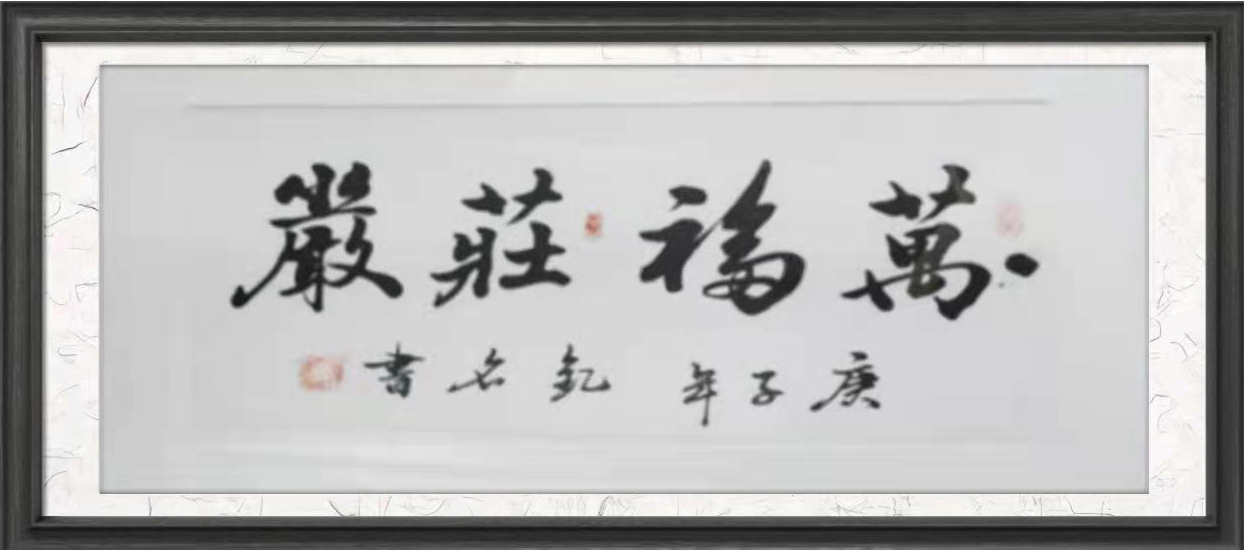 萬福莊嚴
庚子年 釓名書